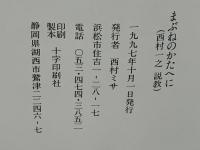 まぶねのかたへに
(西村一之 説教)
一九九七年十月一日発行
発行者 西村ミサ
浜松市住吉一-二八-一七
電話 〇五三-四七四-三八五二
印刷
製本 十字印刷社
静岡県湖西市鷲津二二四六-七